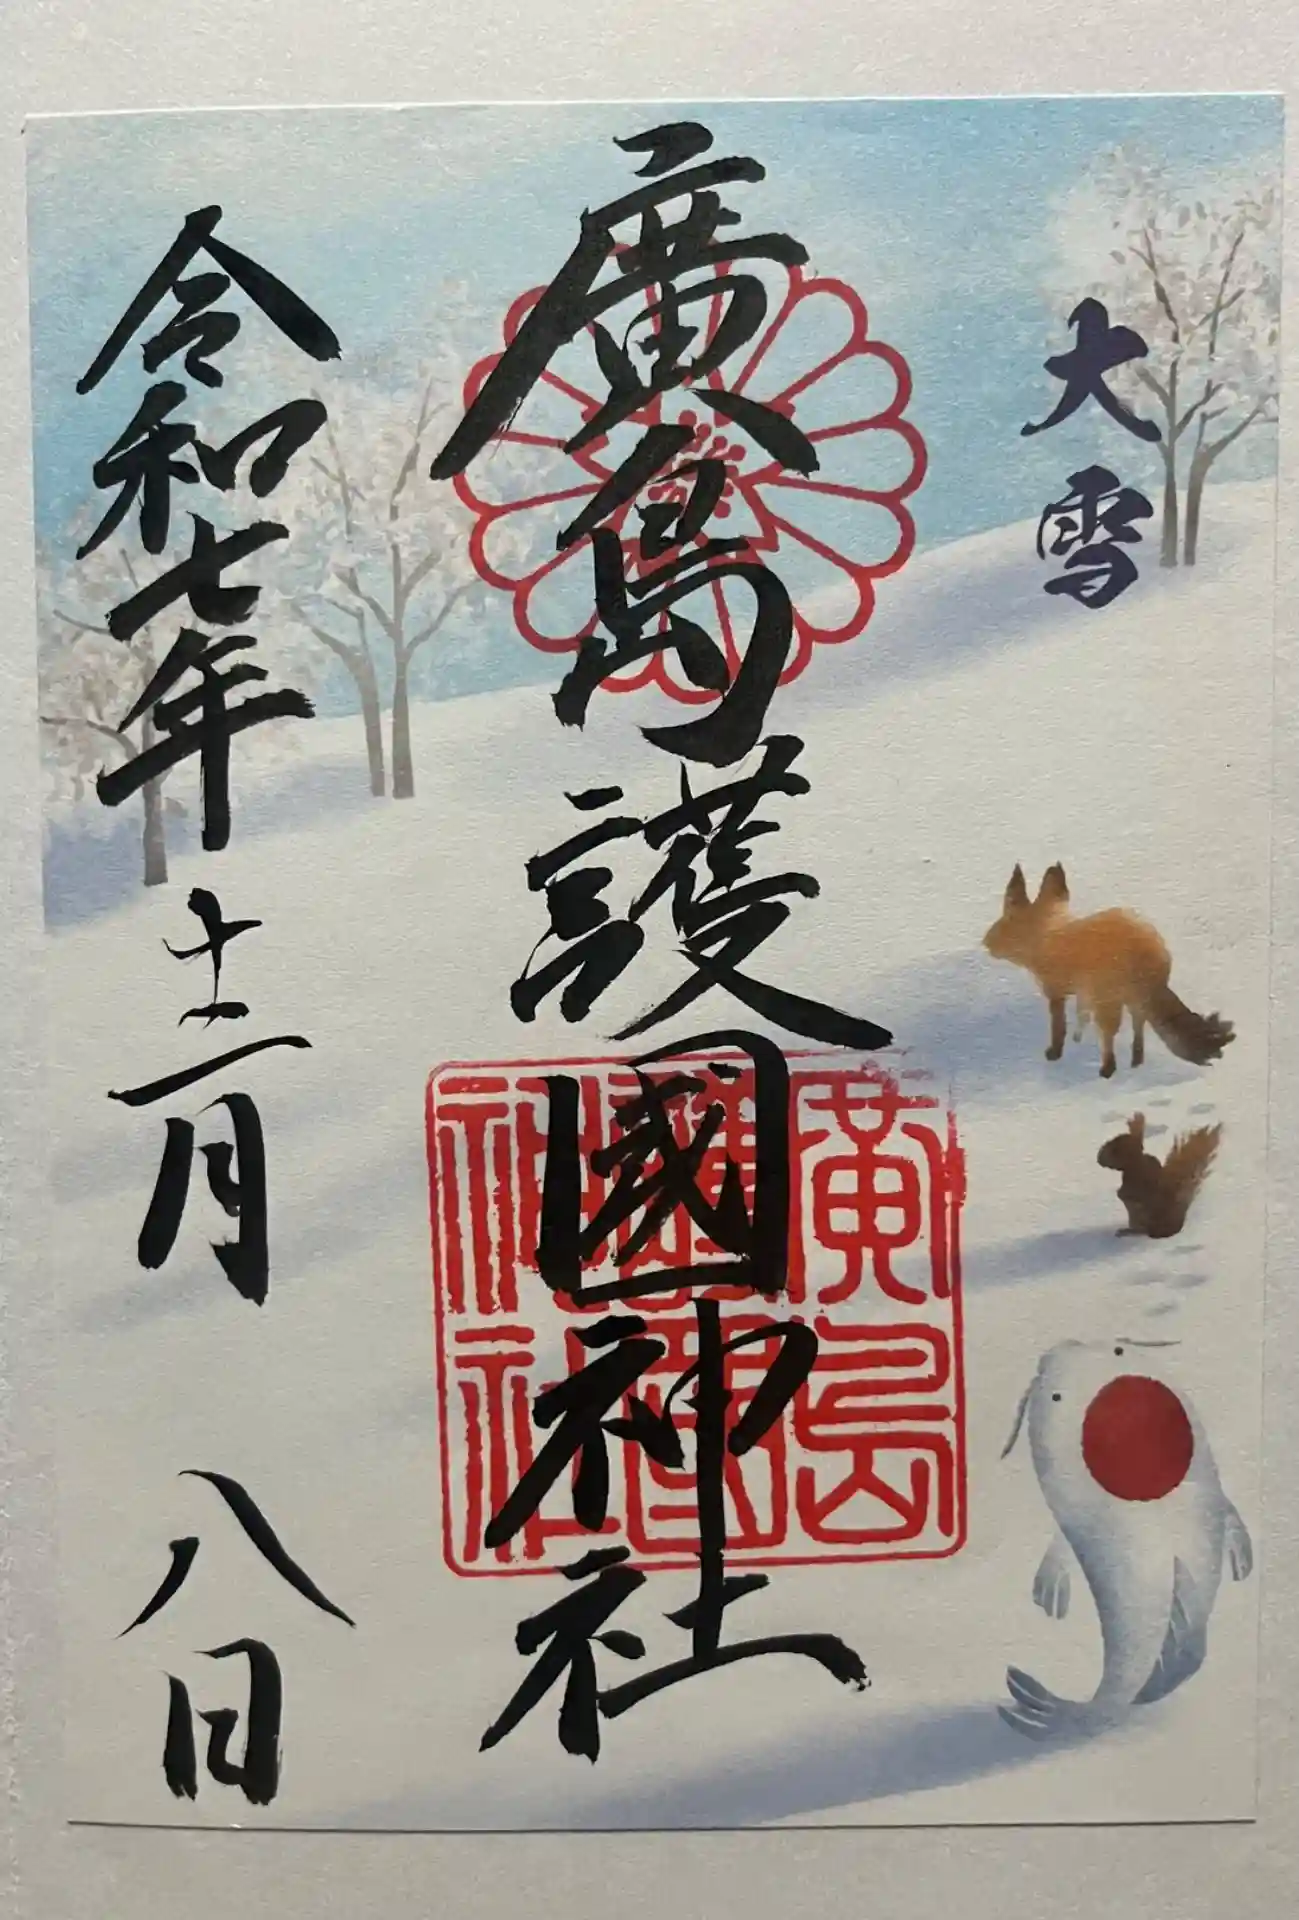 大雪
廣島護國神社
廣島護國神社
令和七年十二月八日